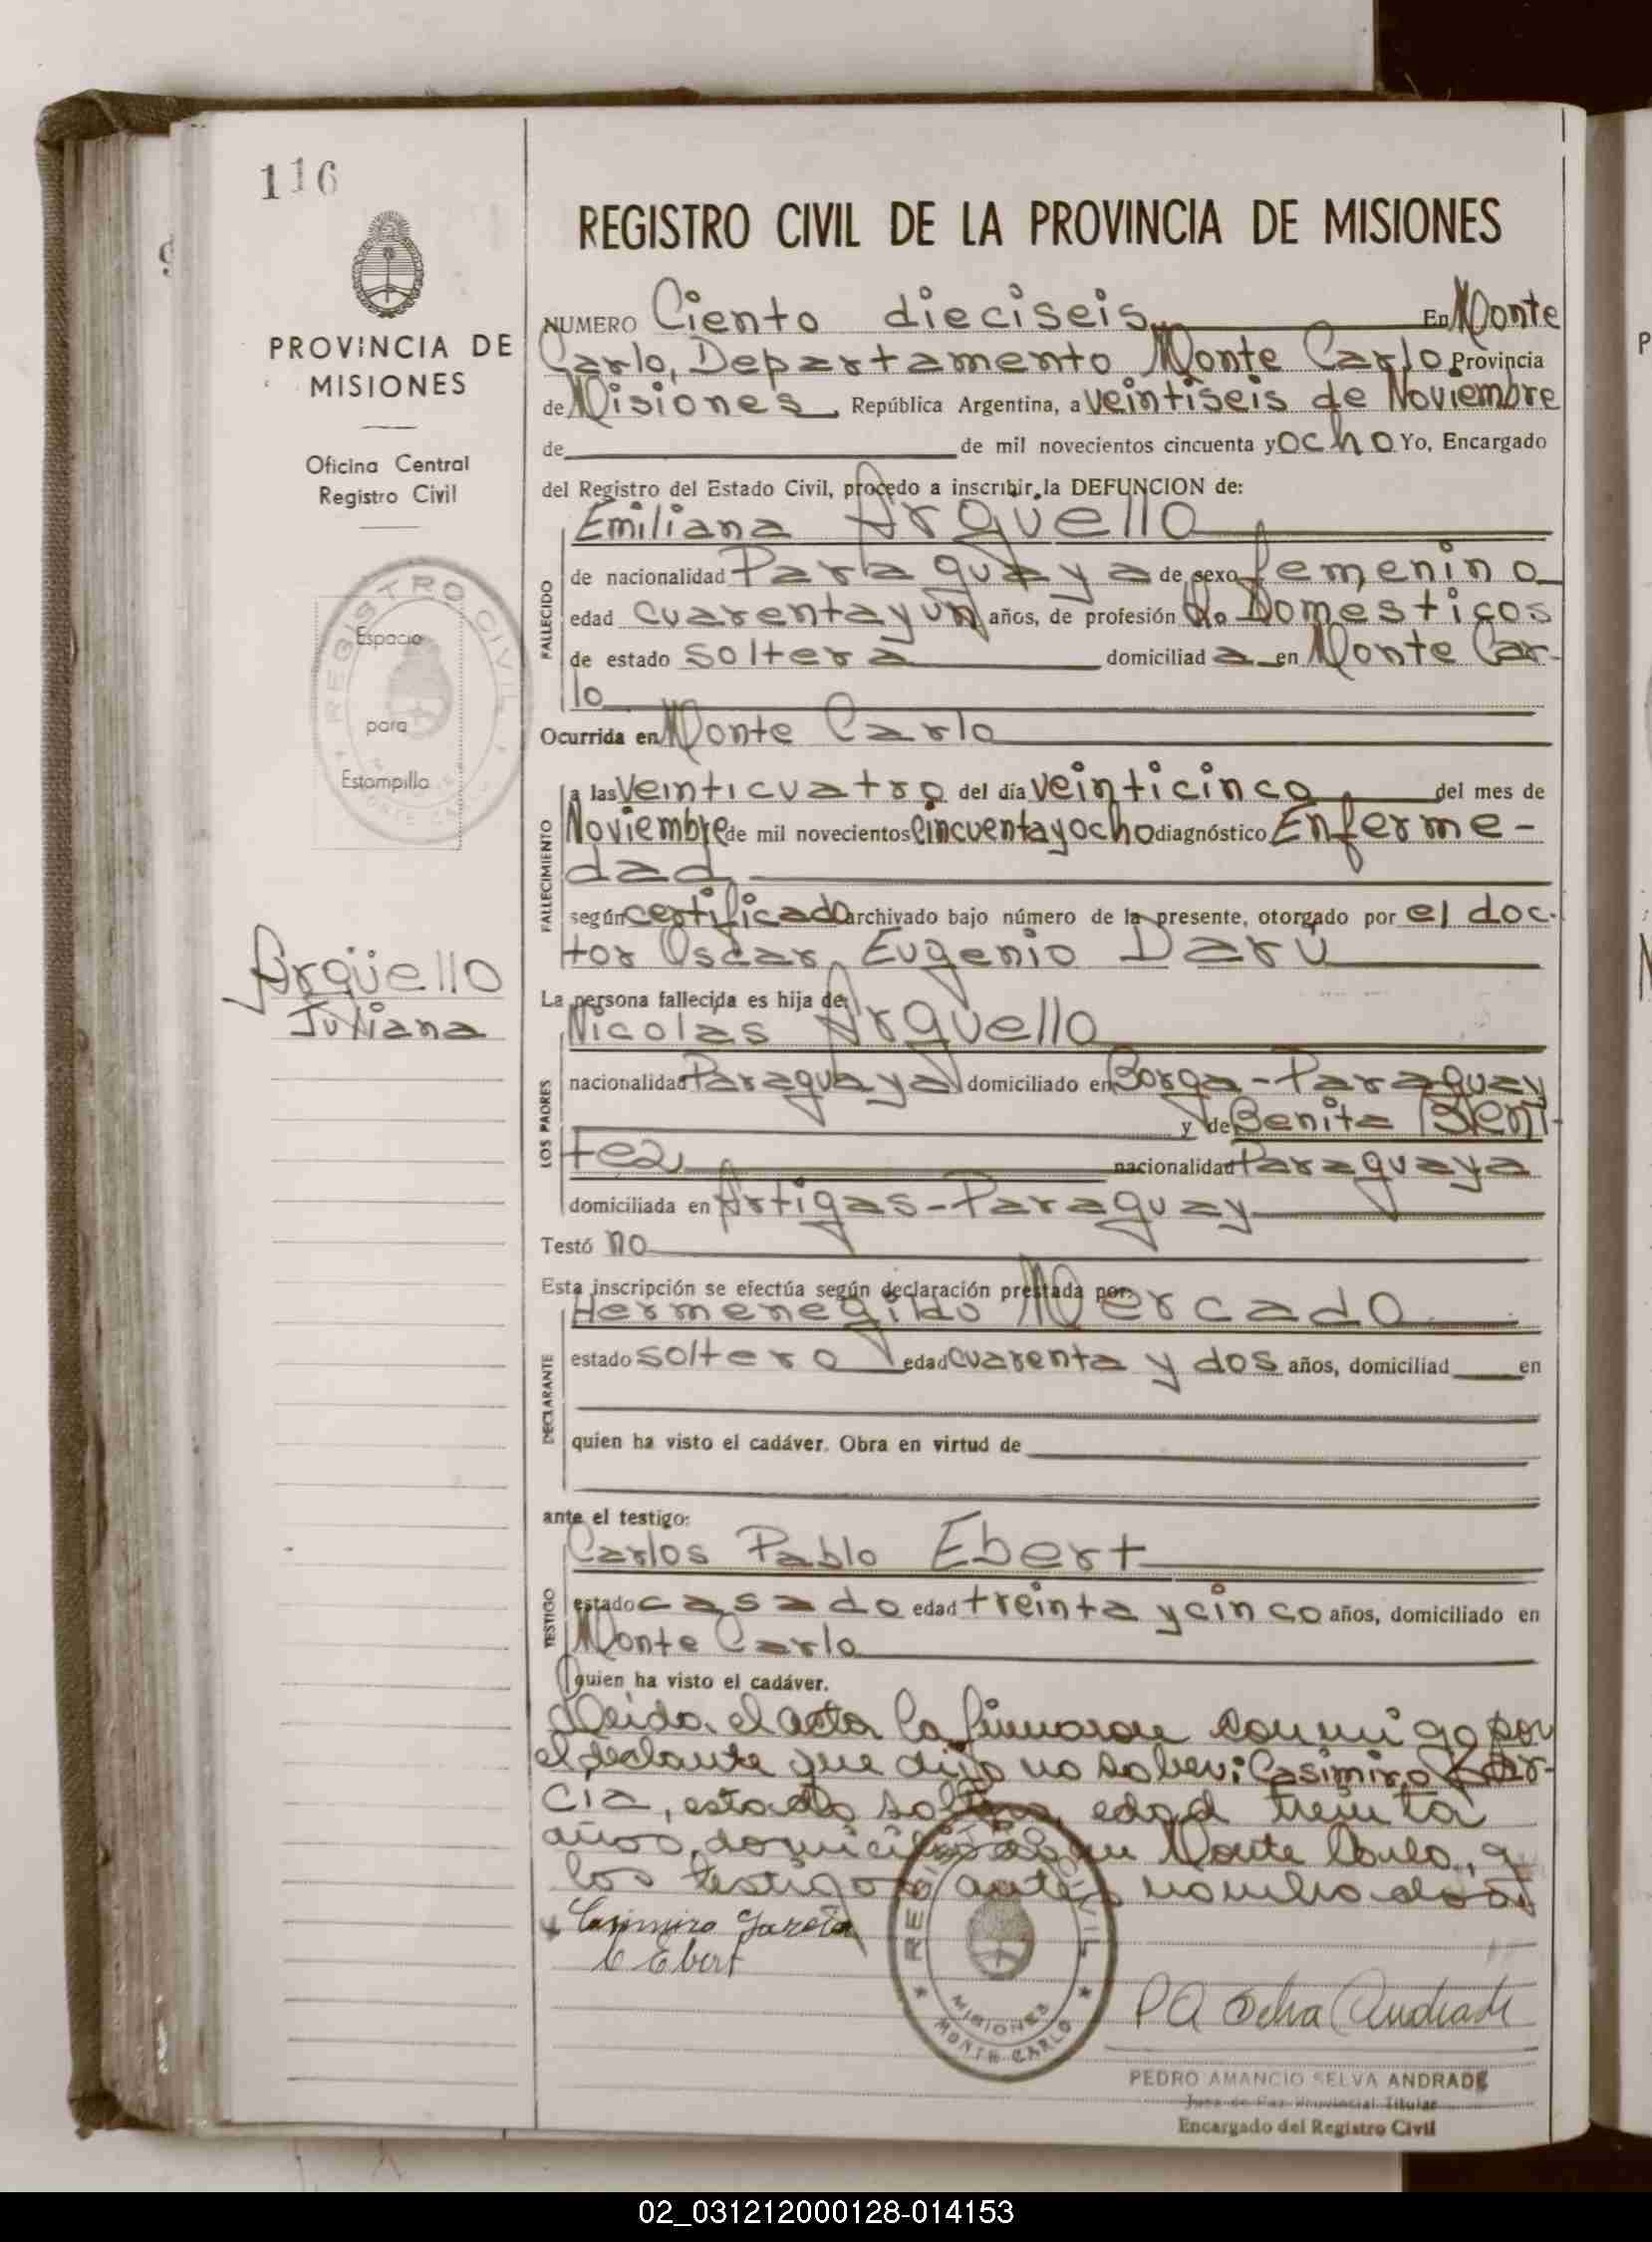 116
REGISTRO CIVIL DE LA PROVINCIA DE MISIONES
PROVINCIA DE
MISIONES
Oficina Central
Registro Civil
REGISTRO CIVIL
Espacio
para
Estampilla
Argüello
Juliana
NUMERO Ciento dieciseis En Monte
Carlo, Departamento Monte Carlo Provincia
de Misiones, República Argentina, a veintiseis de Noviembre
de de mil novecientos cincuenta y ocho Yo, Encargado
del Registro del Estado Civil, procedo a inscribir la DEFUNCION de:
FALLECIDO
Emiliana Arguello
de nacionalidad Paraguaya de sexo femenino
edad cuarenta y un años, de profesión Q. Domesticos
de estado soltera domiciliad a en Monte Car-
lo
Ocurrida en Monte Carlo
FALLECIMIENTO
a las veinticuatro del día veinticinco del mes de
Noviembre de mil novecientos cincuenta y ocho diagnóstico Enferme-
dad
según certificado archivado bajo número de la presente, otorgado por el doc-
tor Oscar Eugenio Darú
La persona fallecida es hija de:
LOS PADRES
Nicolas Arguello
nacionalidad Paraguaya domiciliado en Borga-Paraguay
y de Benita Beni-
tez nacionalidad Paraguaya
domiciliada en Artigas-Paraguay
Testó no
Esta inscripción se efectúa según declaración prestada por:
DECLARANTE
Hermenegildo Mercado
estado soltero edad cuarenta y dos años, domiciliad en
quien ha visto el cadáver. Obra en virtud de
ante el testigo:
TESTIGO
Carlos Pablo Ebert
estado casado edad treinta y cinco años, domiciliado en
Monte Carlo
quien ha visto el cadáver.
Leida el acta la firmaron conmigo por
el declante que dijo no saber: Casimiro Gar-
cia, estado soltero edad treinta
años, domiciliado en Monte Carlo, y
los testigos antes nombrados
Casimiro Garcia
C Ebert
REGISTRO CIVIL
MISIONES
MONTE CARLO
P A Selva Andrade
PEDRO AMANCIO SELVA ANDRADE
Juez de Paz Provincial Titular
Encargado del Registro Civil
02_031212000128-014153